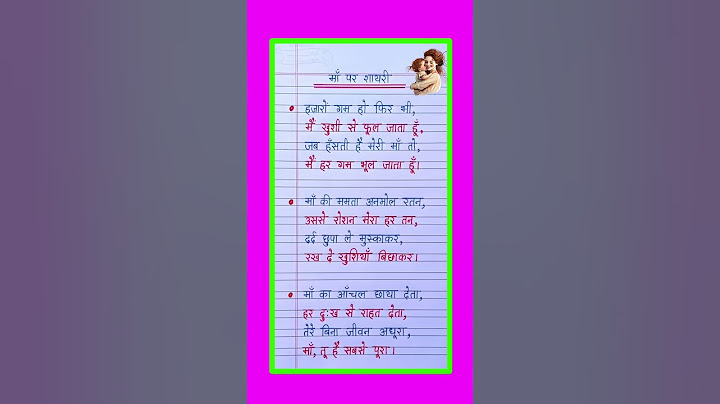 माँ पर शायरी
हजारों गम हो फिर भी,
मैं खुशी से फूल जाता हूँ,
जब हँसती है मेरी माँ तो,
मैं हर गम भूल जाता हूँ।
माँ की ममता अनमोल रतन,
उससे रोशन मेरा हर तन,
दर्द छुपा ले मुस्काकर,
रख दे खुशियाँ बिछाकर।
माँ का आँचल छाया देता,
हर दुःख से राहत देता,
तेरे बिना जीवन अधूरा,
माँ, तू है सबसे पूरा।